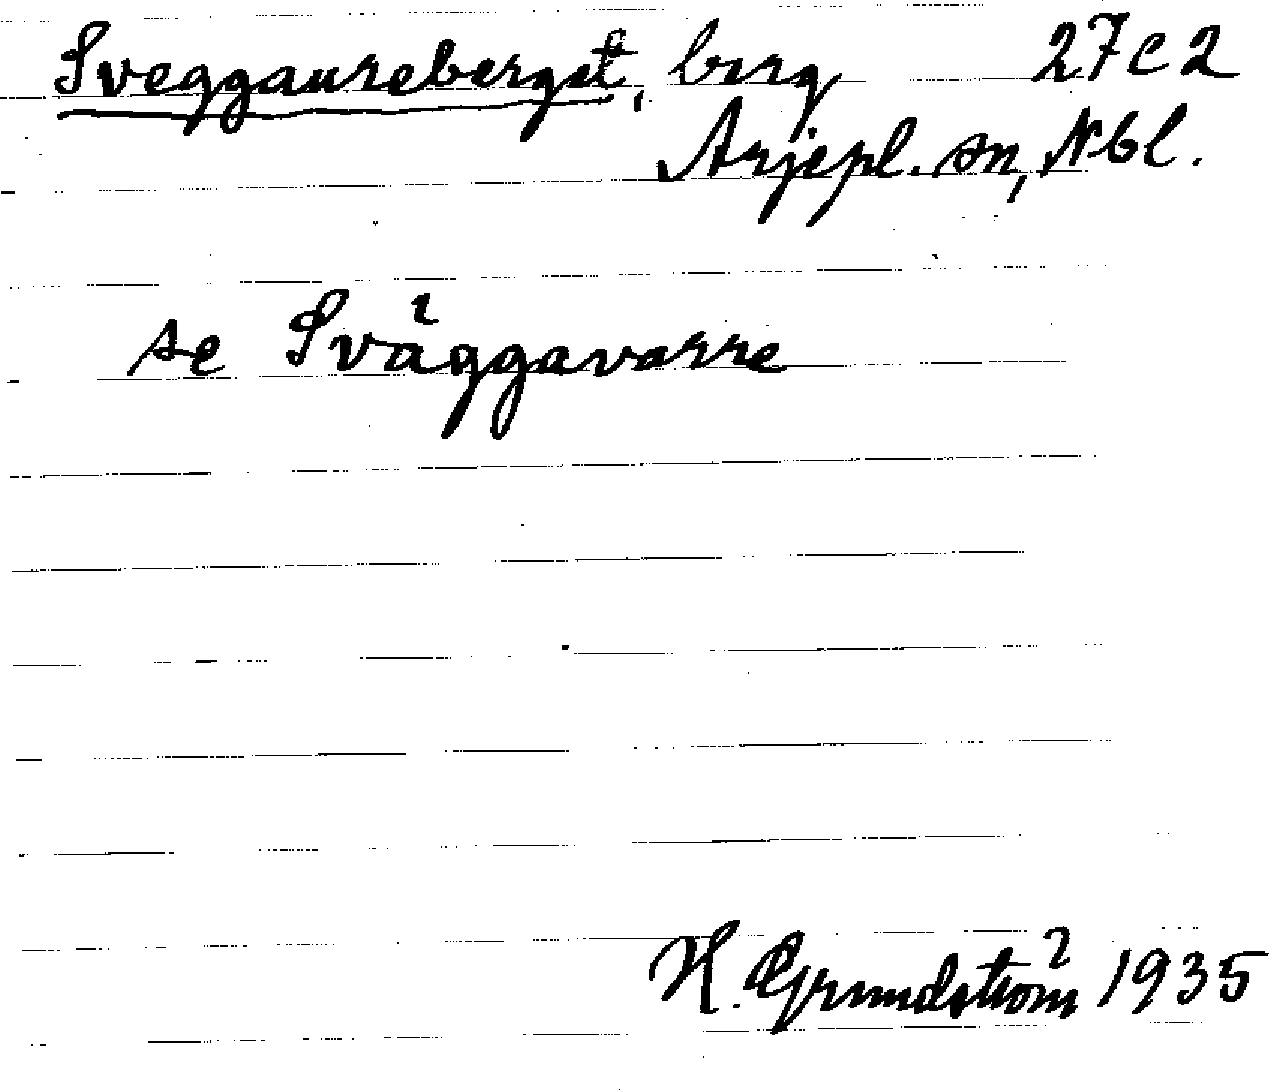 Sveggaureberget, berg 27C2
Arjepl. sn, Nbl.
se Sväggavarre
H. Grundström 1935